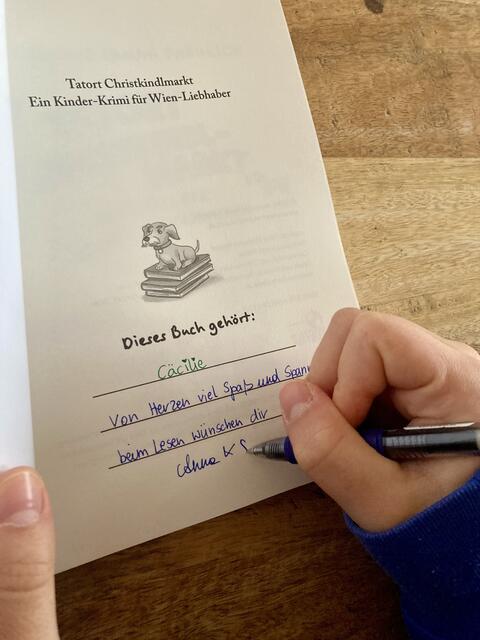 Tatort Christkindlmarkt
Ein Kinder-Krimi für Wien-Liebhaber
Dieses Buch gehört:
Cäcilie
Von Herzen viel Spaß und Spann
beim Lesen wünschen dir
Anna K